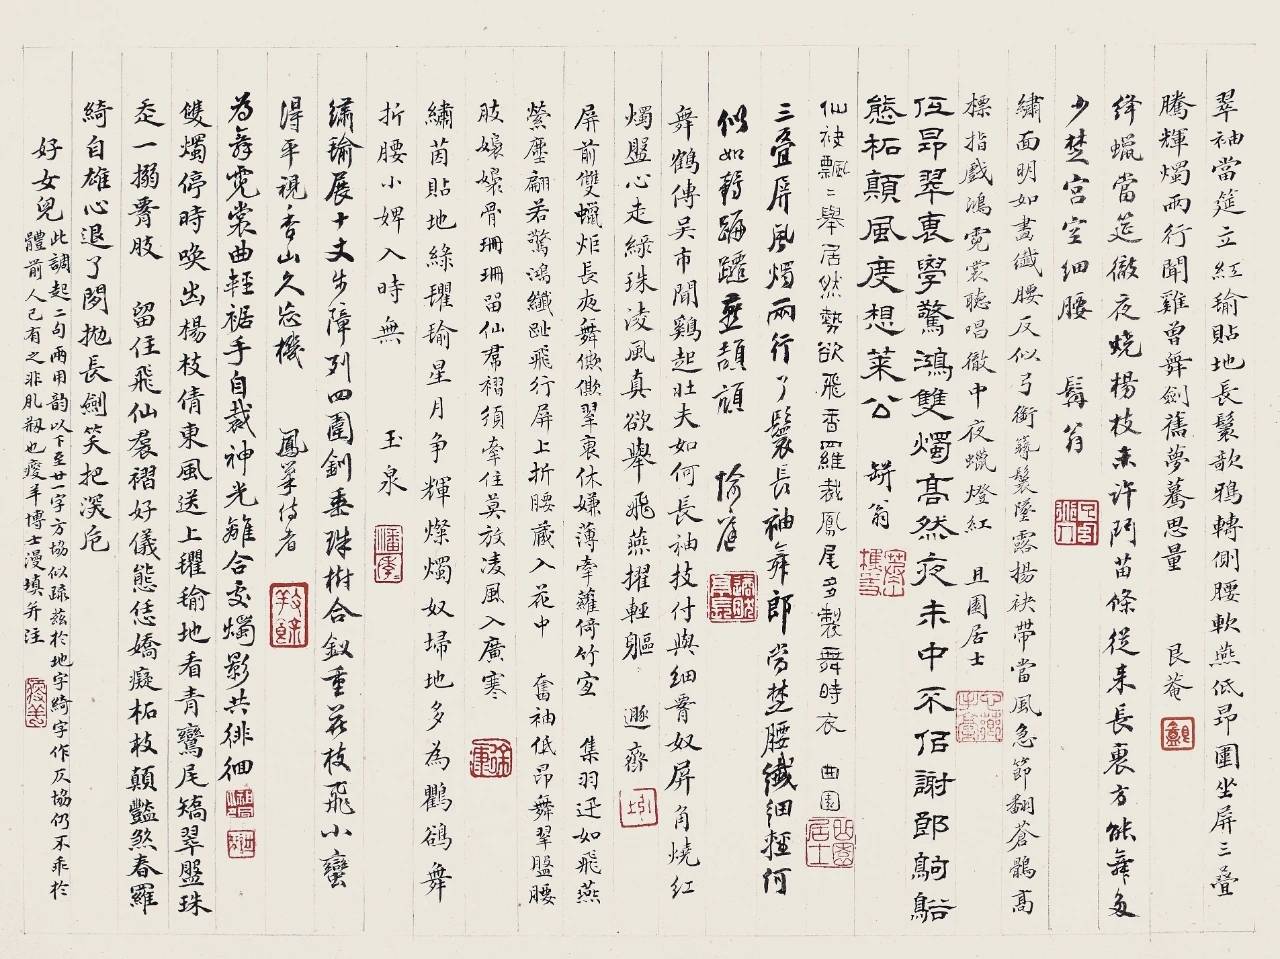 翠袖當筵立紅瑜貼地長鬟欹鴉轉側腰軟燕低昂圍坐屏三疊
騰輝燭兩行聞雞曾舞劍舊夢驀思量 艮菴
絳蠟當筵徹夜燒楊枝未許鬥苗條從來長袤方能舞多
少楚宮空細腰 鬍翁
繡面明如畫纖腰反似弓銜簪鬟墜露揚袂帶當風急節翻蒼鶻高
標指戲鴻霓裳聽唱徹中夜蠟燈紅 且園居士
低昂翠裏學驚鴻雙燭高然夜未中不侶謝郎鴝鵒
態柘顛風度想萊公 缾翁
仙袂飄飄舉居然勢欲飛香羅裁鳳尾多製舞時衣 曲園
三疊屏風燭兩行了鬟長袖舞郎當楚腰纖細輕何
似如鞸踊躚 頡頏 愉庭
舞鶴傳吳市聞鷄起壯夫如何長袖技付與細膋奴屏角燒紅
燭盤心走綠珠凌風真欲舉飛燕擢輕軀 遯齋
屏前雙蠟炬長夜舞僛僛翠裏休嫌薄牽蘿倚竹宜 集羽迂如飛燕
縈塵翩若驚鴻纖趾飛行屏上折腰藏入花中 奮袖低昂舞翠盤腰
肢嬝嬝骨珊珊留仙帬褶須牽住莫放凌風入廣寒
繡茵貼地綠氍瑜星月爭輝燦燭奴埽地多為鸜鵒舞
折腰小婢入時無 玉泉
繡瑜展十丈步障列四圍釧垂珠樹合釵重花枝飛小蠻
得平視香山久忘機 鳳 侍者
為舞霓裳曲輕裾手自裁神光離合處燭影共徘徊
雙燭停時喚出楊枝倩東風送上氍瑜地看青鸞尾矯翠盤珠
走一搦膋肢 留住飛仙裠褶好儀態恁嬌癡柘枝顛豔煞春羅
綺自雄心退了閒拋長劍笑把深卮
好女兒 此調起二句兩用韵以下至廿一字方協似疎茲於地字綺字作仄協仍不乖於
體前人已有之非肊翔也瘦羊博士漫填并注